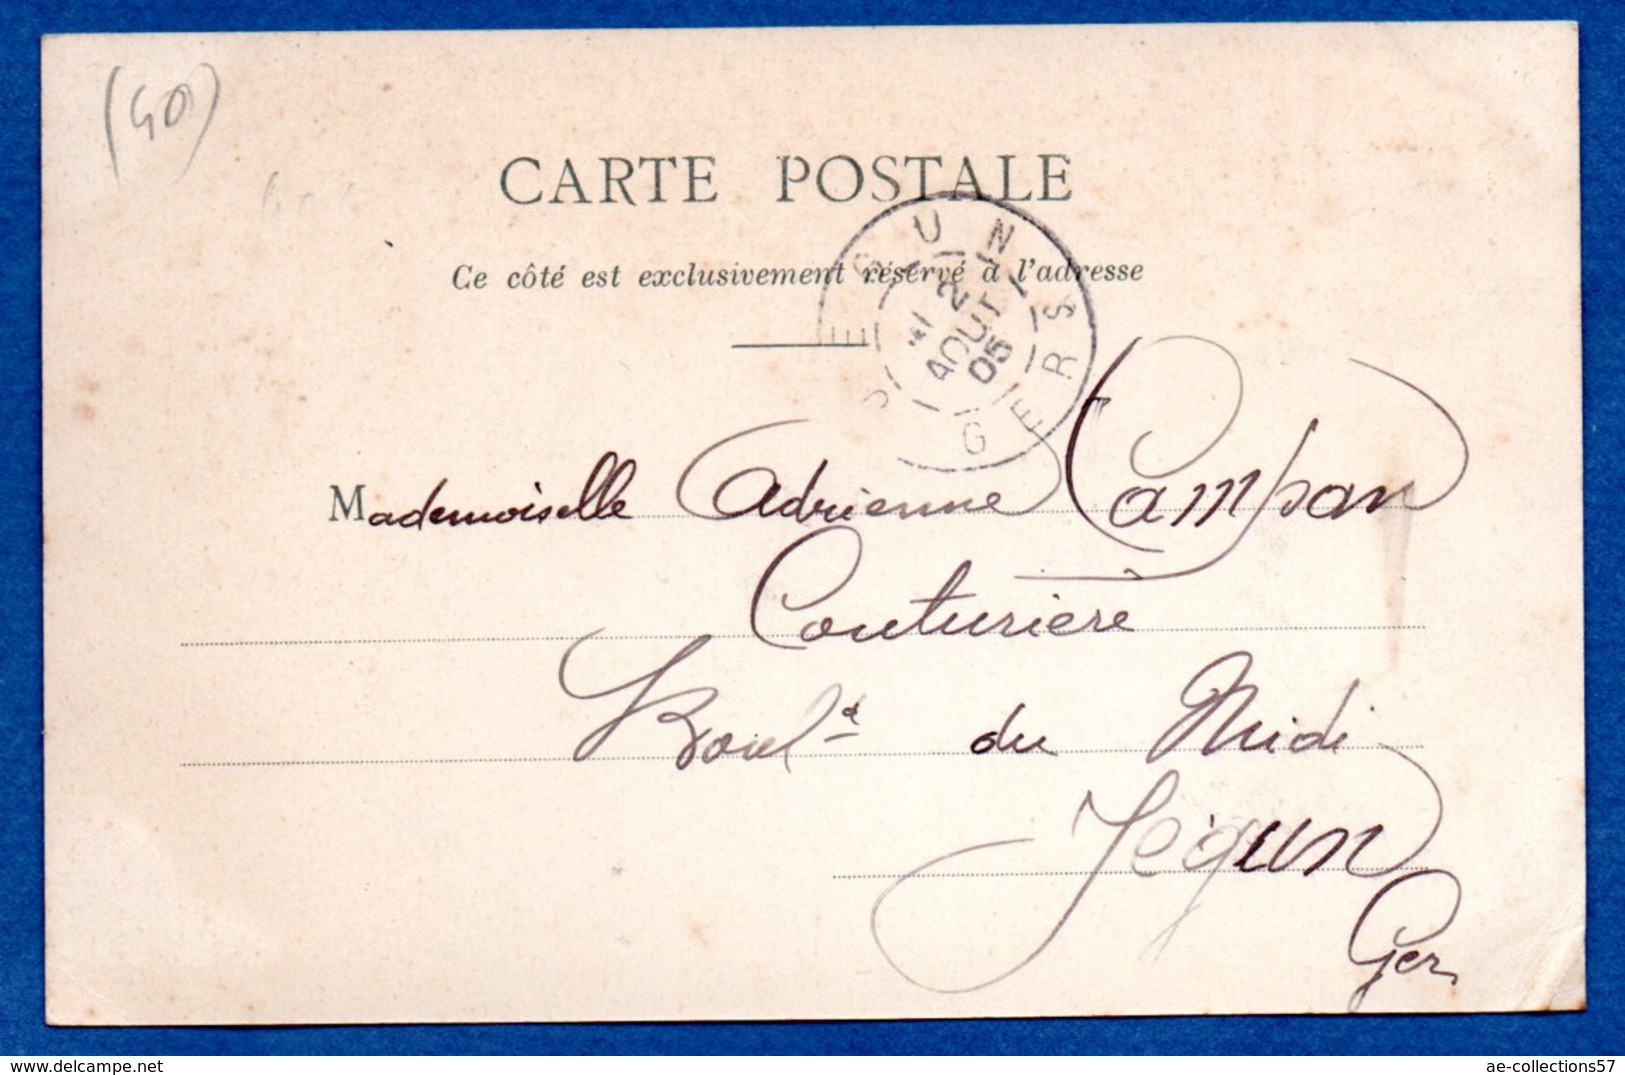 (40)
CARTE POSTALE
Ce côté est exclusivement réservé à l'adresse
JEGUN
2
AOUT
05
GERS
Mademoiselle Adrienne Campan
Couturière
Boul.d du Midi
Jegun
Gers
ae-collections57